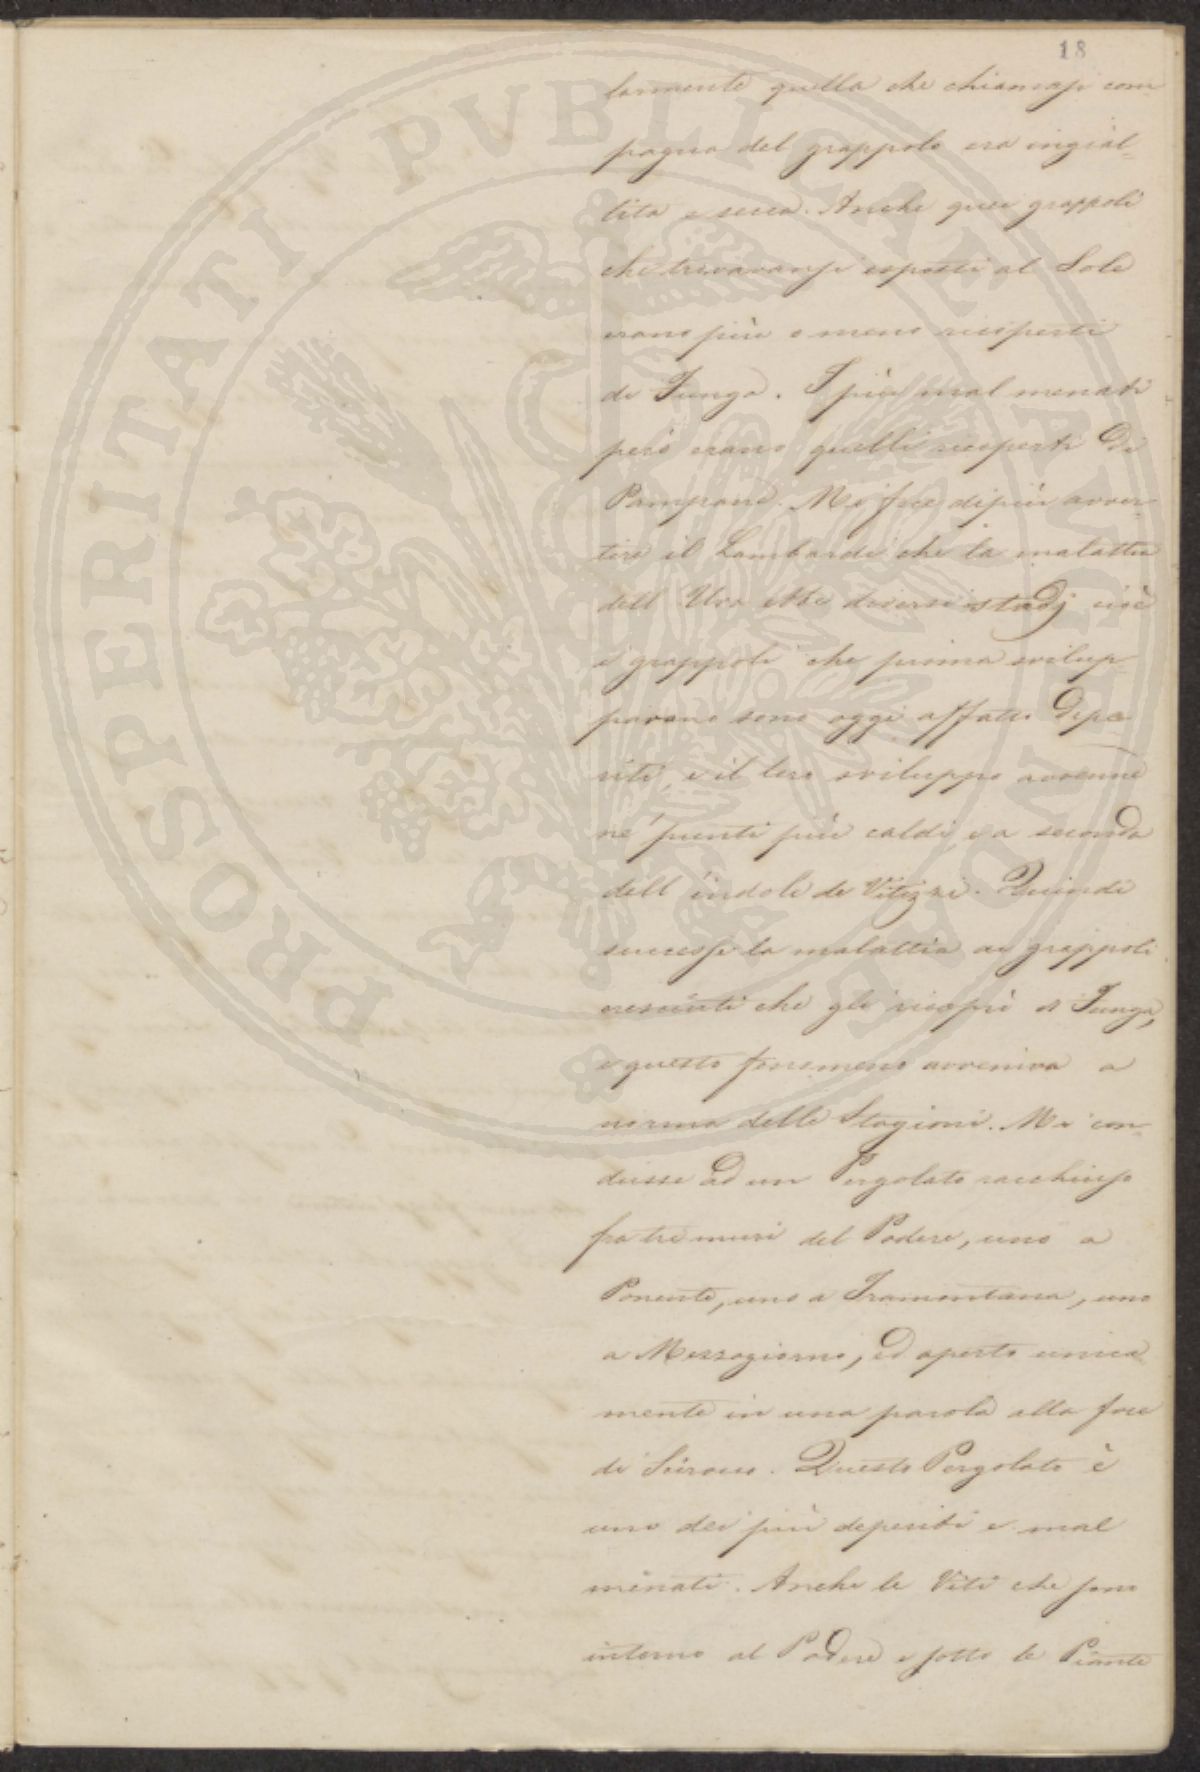 18
larmente quella che chiamasi com
pagna del grappolo era ingial-
lita e secca. Anche quei grappoli
che trovavansi esposti al Sole
erano più o meno ricoperti
di Funga. I più mal menati
però erano quelli ricoperti Di
Pampani. Mi fece dipiù avver-
tire il Lombardi che la malattia
dell' Uva ebbe diversi stadj cioè
i grappoli che prima svilup-
pavano sono oggi affatto Depe-
riti, e il loro sviluppo avvenne
ne' punti più caldi, e a seconda
dell' indole de Vitizzi. Quindi
successe la malattia ai grappoli
cresciuti che gli ricoprì di Funga,
e questo fenomeno avveniva a
norma delle Stagioni. Mi con-
dusse ad un Pergolato racchiuso
fra tre muri del Podere, uno a
Ponente, uno a Tramontana, uno
a Mezzogiorno, ed aperto unica
mente in una parola alla foce
di Scirocco. Questo Pergolato è
uno dei più deperiti e mal
menati. Anche le Viti che sono
intorno al Podere e sotto le Piante
PROSPERITATI PUBLICAE AUGENDAE